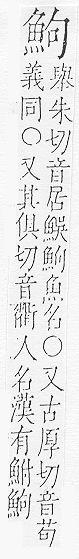 鮈
舉朱切音居鯸鮈魚名○又古厚切音茍
義同○又其俱切音衢人名漢有鮒鮈